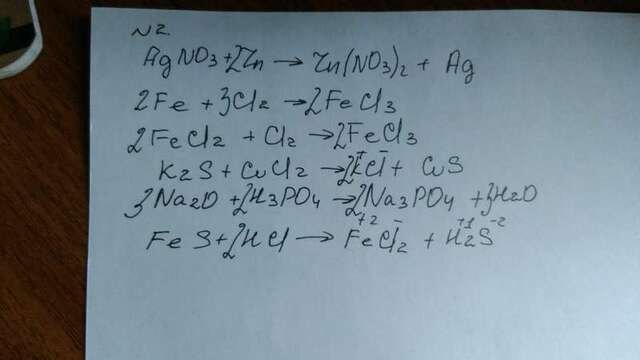 N2.
AgNO3 + 2Zn → Zn(NO3)2 + Ag
2Fe + 3Cl2 → 2FeCl3
2FeCl2 + Cl2 → 2FeCl3
K2S + CuCl2 → 2K⁺Cl⁻ + CuS
3Na2O + 2H3PO4 → 2Na3PO4 + 3H2O
FeS + 2HCl → Fe⁺²Cl⁻2 + H⁺¹2S⁻²